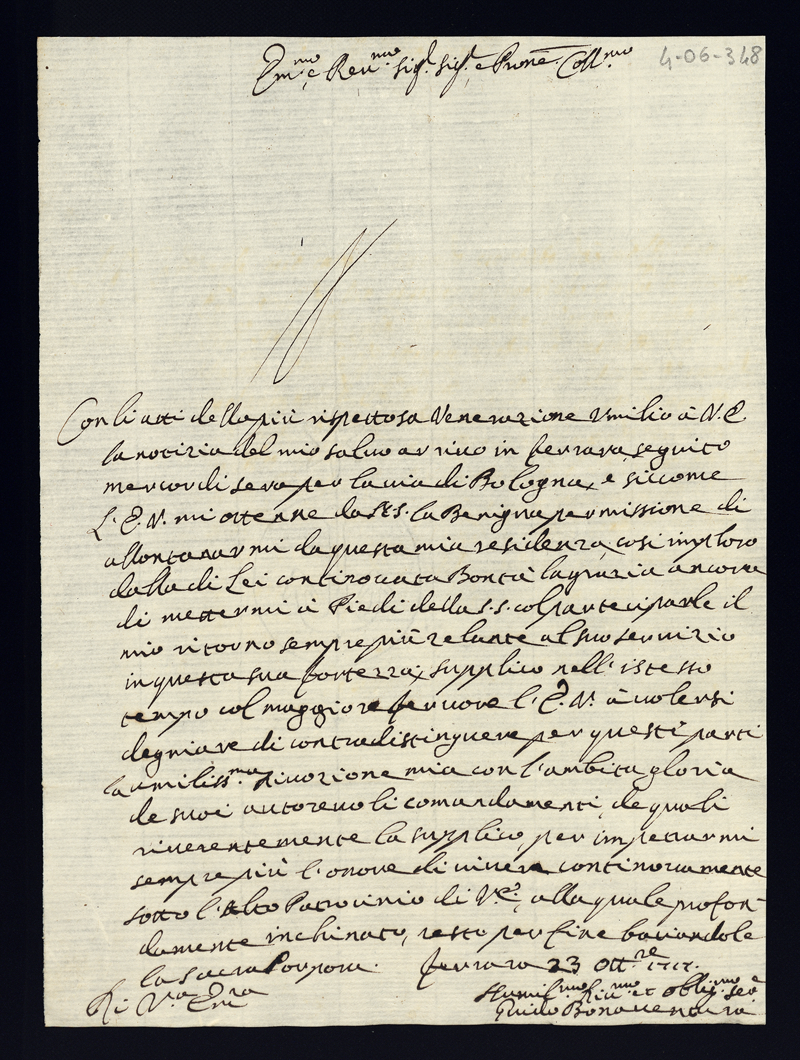 4-06-348
Em.mo e Reu.mo Sig.r Sig.r e Prone Coll.mo
Con li atti della più rispettosa Venerazione Vmilio à V. E.
la notizia del mio saluo arriuo in ferrara, seguito
mercordi sera per la uia di Bologna, e siccome
l'E. V. mi ottenne da la Benigna permissione di
allontanarmi da questa mia residenza, cosi imploro
dalla di Lei continouata Bontà la grazia ancora
di mettermi à Piedi della S. S. col parteciparle il
mio ritorno sempre più zelante al suo seruizio
in questa sua fortezza, supplico nell'istesso
tempo col maggiore feruore l'E. V. à uolersi
degniare di contradistinguere per questi parti
la umiliss.ma diuozione mia con l'ambita gloria
de suoi autoreuoli comandamenti, de quali
riuerentemente la supplico, per impetrarmi
sempre più l'onore di uiuere continouamente
sotto l'Alto Patrocinio di V.E., alla quale profon-
damente inchinato, resto per fine baciandole
la Sacra Porpora. ferrara 23 Ott.re
Di V.ra Em.ra
Humil.mo et oblig.mo Se.
Guido Bonauentura